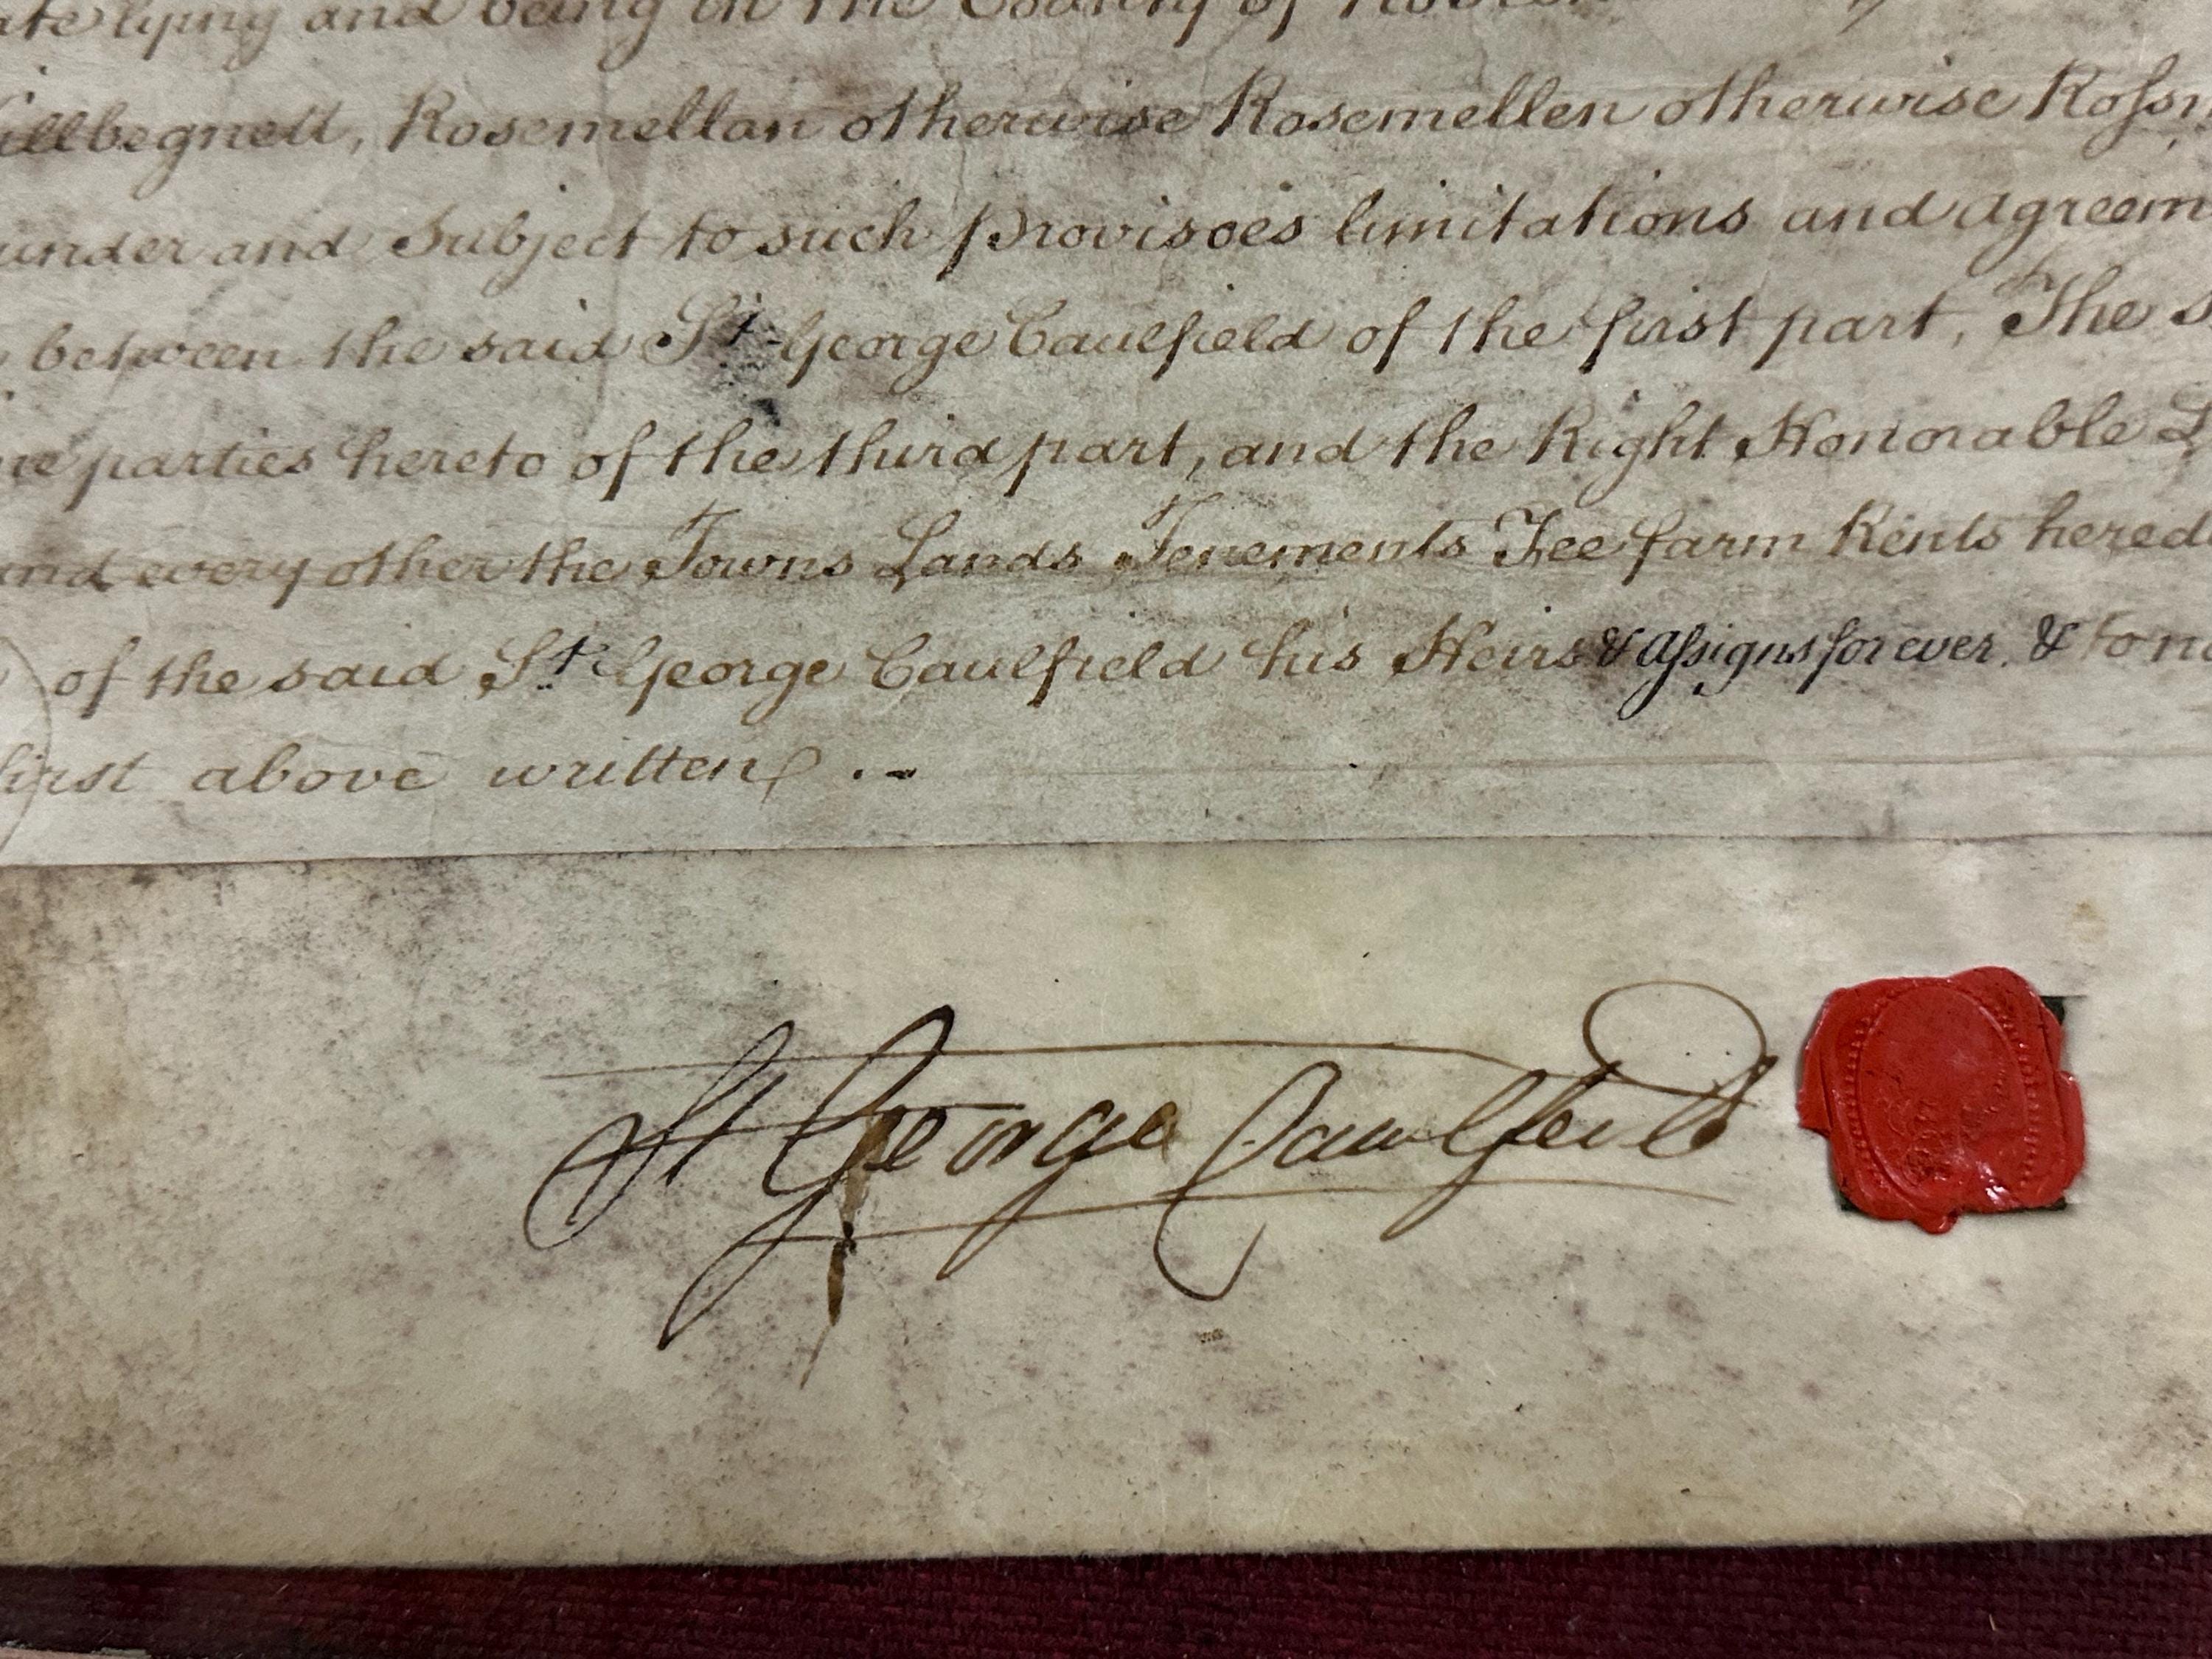 lying and being in the County of
Rosemellan otherwise Rosemellen otherwise Rossm
under and Subject to such provisoes limitations and agreem
between the said St George Caulfield of the first part, The s
parties hereto of the third part, and the Right Honorable L
and every other the Towns Lands Tenements Fee farm Rents heredi
of the said St George Caulfield his Heirs & assigns for ever. & to no
first above written
St George Caulfeild